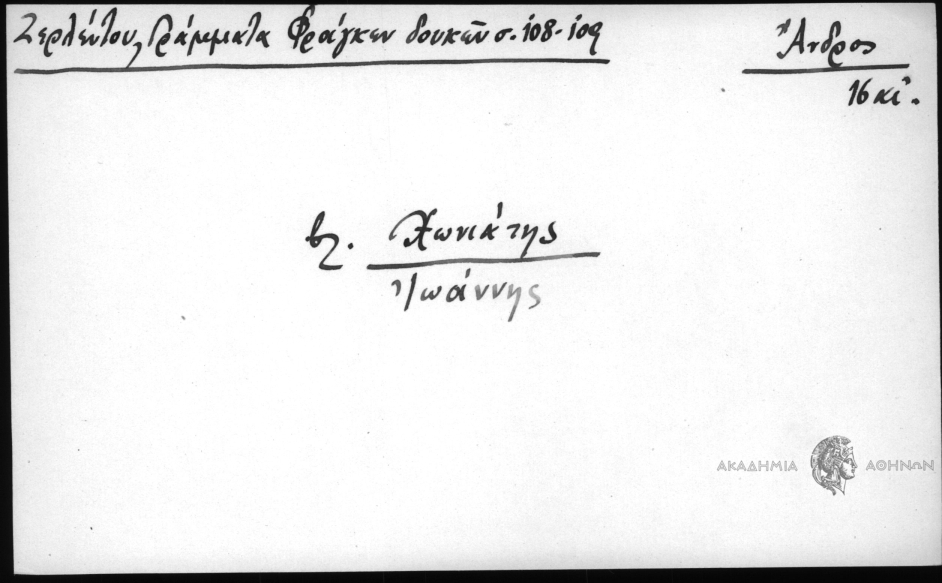 Ζερλέντου, Γράμματα Φράγκων δουκῶν σ. 108-109
Ἄνδρος
16 αἰ.
βλ. Χωνιάτης
Ἰωάννης
ΑΚΑΔΗΜΙΑ ΑΘΗΝΩΝ